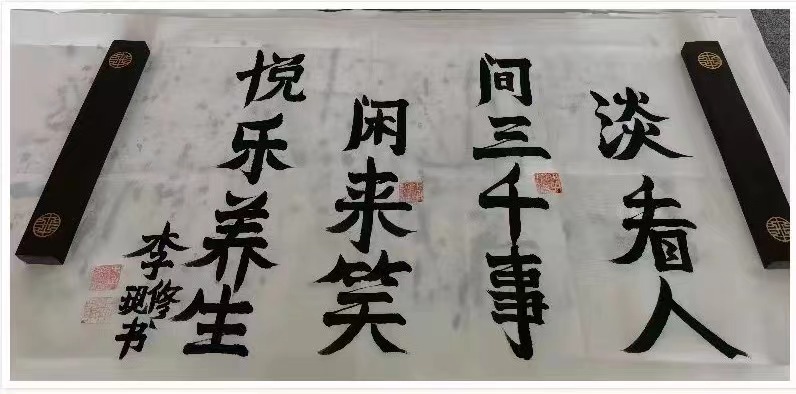 淡看人
间三千事
闲来笑
悦乐养生
李修
现书